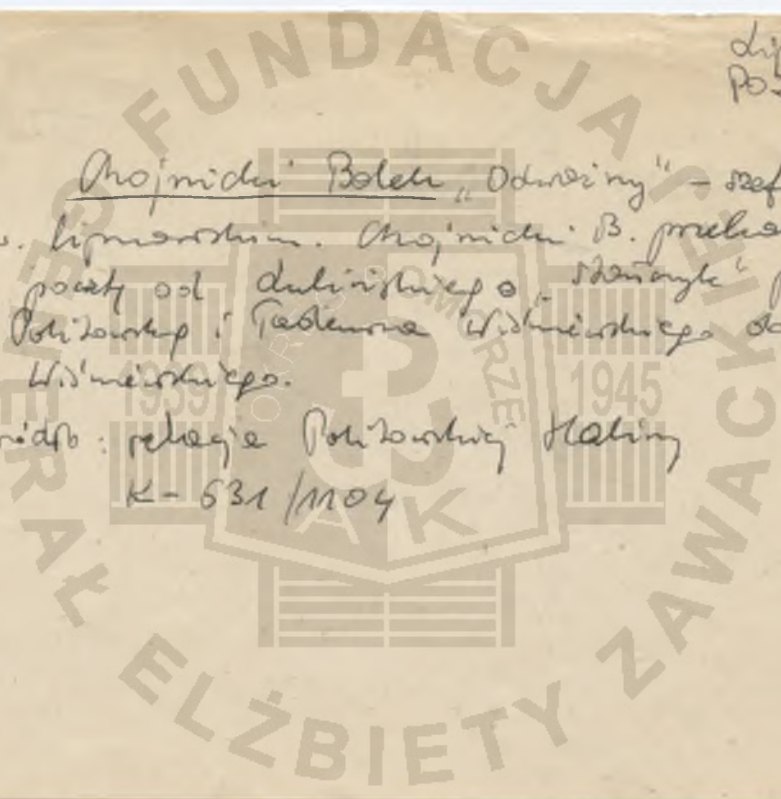 Lip
Chojnicki Bolek „Odważny" – szef
w. lipnowskim. Chojnicki B. przeka
poczty od Lubińskiego „Stańczyk" p
Politowską i Tadeusza Wiśniewskiego do
Wiśniewskiego.
ródło: relacja Politowskiej Haliny
K-631/1104
FUNDACJA
GENERAŁ ELŻBIETY ZAWACKIEJ
POMORZE
1939 1945
AK